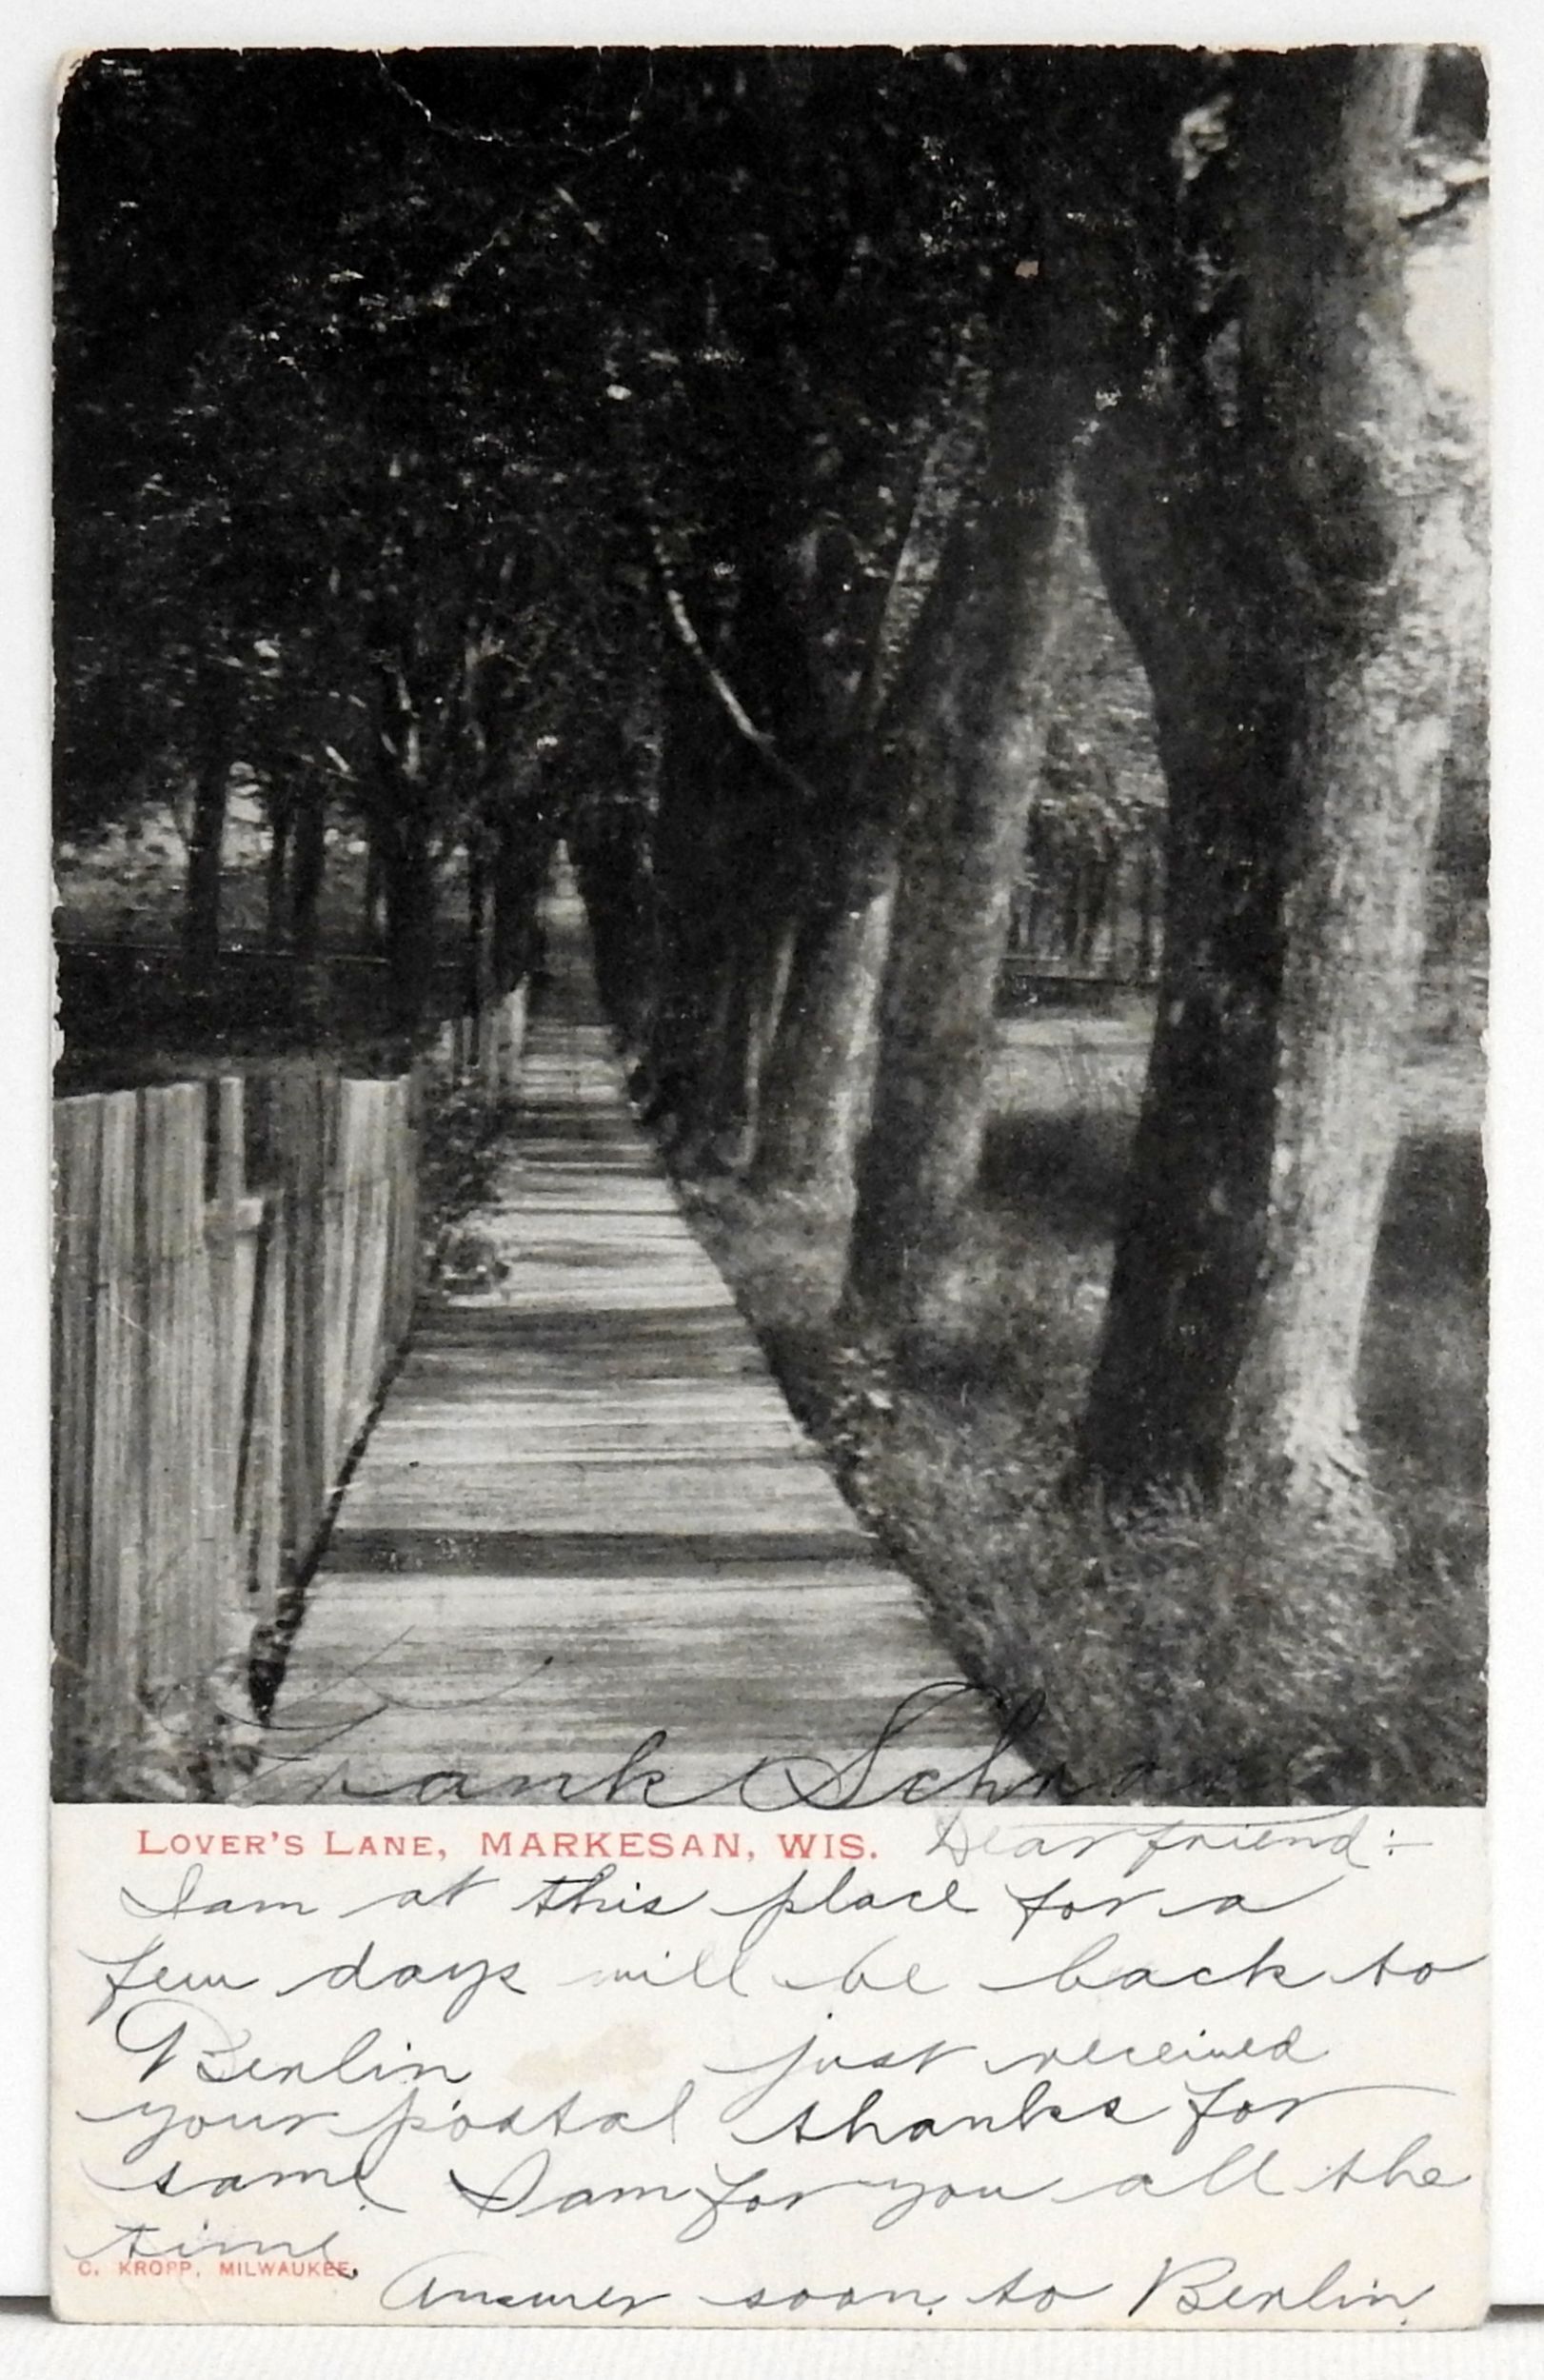 Frank
LOVER'S LANE, MARKESAN, WIS. Dear friend:-
I am at this place for a
few days will be back to
Berlin just received
your postal thanks for
same. I am for you all the
time.
C. KROPP, MILWAUKEE.
Answer soon. to Berlin.